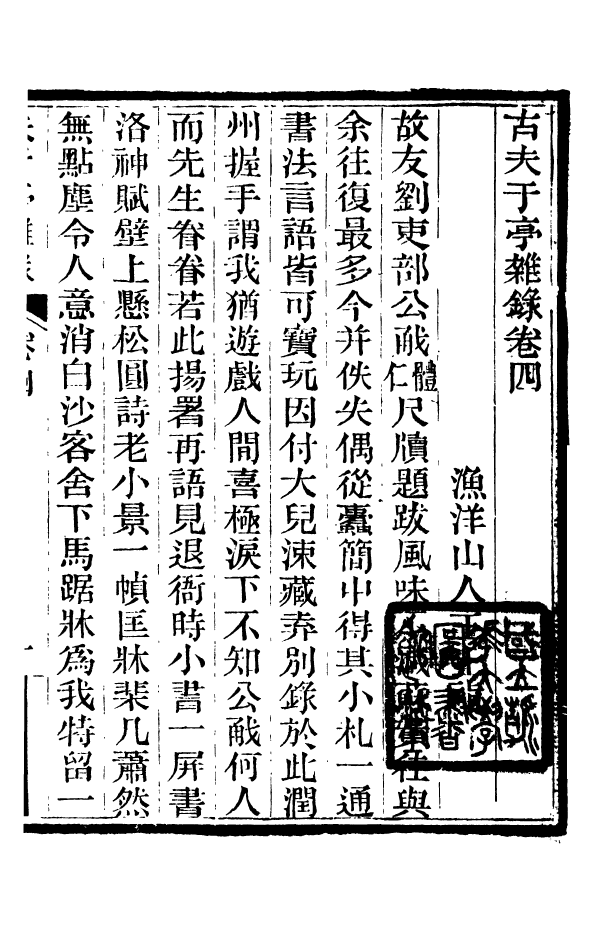 古夫于亭雜錄卷四
漁洋山人
故友劉吏部公㦷體仁尺牘題跋風味與
余往復最多今并佚失偶從蠹簡中得其小札一通
書法言語皆可寶玩因付大兒涑藏弆別錄於此潤
州握手謂我猶遊戲人間喜極淚下不知公㦷何人
而先生眷眷若此揚署再語見退衙時小書一屏書
洛神賦壁上懸松圓詩老小景一幀匡牀棐几蕭然
無點塵令人意消白沙客舍下馬踞牀爲我特留一